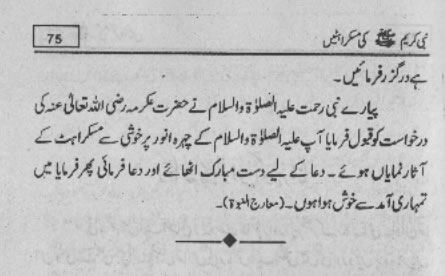 نبی کریم ﷺ کی مسکراہٹیں
75
ہے درگزر فرمائیں۔
پیارے نبی رحمت علیہ الصلوٰۃ والسلام نے حضرت عکرمہ رضی اللہ تعالیٰ عنہ کی
درخواست کو قبول فرمایا آپ علیہ الصلوٰۃ والسلام کے چہرہ انور پر خوشی سے مسکراہٹ کے
آثار نمایاں ہوئے۔ دعا کے لیے دست مبارک اٹھائے اور دعا فرمائی پھر فرمایا میں
تمہاری آمد سے خوش ہوا ہوں۔ (معارج النبوۃ)۔